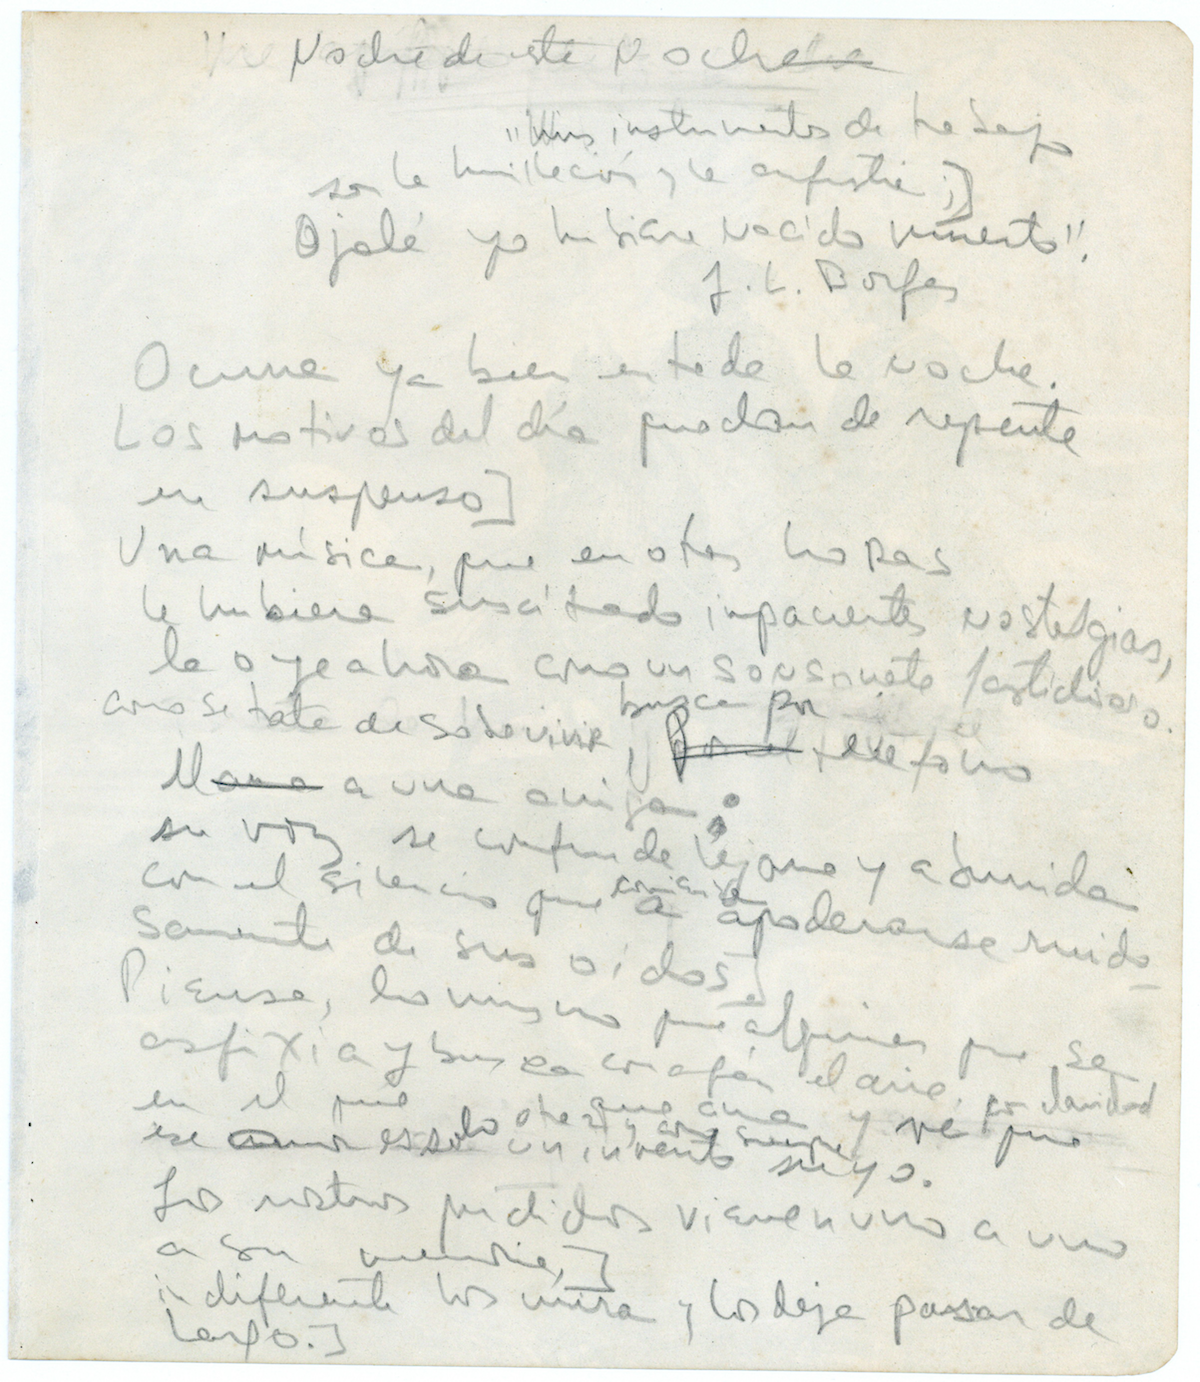 Noche de este Noche
"Mis instrumentos de trabajo
son la humillación y la angustia;]
Ojalá yo hubiera nacido muerto".
J. L. Borges
Ocurre ya bien entrada la noche.
Los motivos del día quedan de repente
en suspenso]
Una música, que en otras horas
le hubiera suscitado impacientes nostalgias,
la oye ahora como un sonsonete fastidioso.
busca por
como se trate de sobrevivir, Por el teléfono
Llama a una amiga;
su voz se confunde lejana y aburrida
con el silencio que comienza
a apoderarse ruido-
samente de sus oídos]
Piensa, lo mismo que alguien que se
asfixia y busca con afán el aire,
en el que ama y ve con claridad que
otra vez y como siempre
ese amor es solo un invento suyo.
Los rostros perdidos vienen uno a uno
a su memoria,]
indiferente los mira y los deja pasar de
largo.]